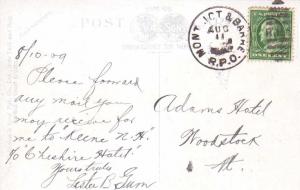 POST
8/10-09
Please forward
any mail you
may receive for
me to Keene N.H.
c/o "Cheshire Hotel"
Yours truly
Lester B.
MONT. JCT & BARRE
AUG
11
R.P.O.
ONE CENT
Adams Hotel
Woodstock
Vt.